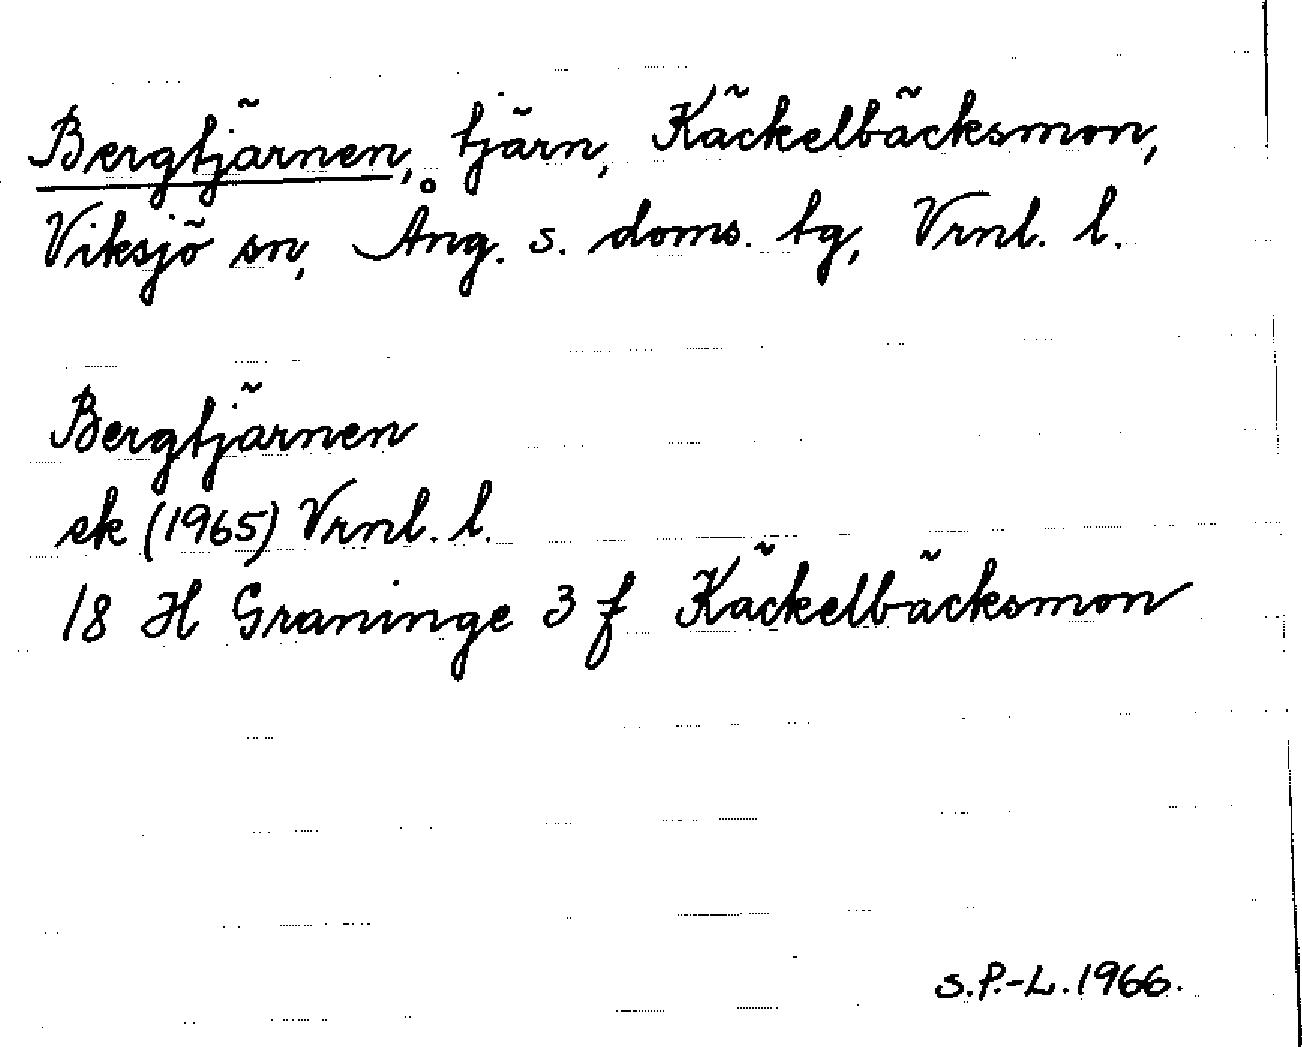 Bergtjärnen, tjärn, Käckelbäcksmon,
Viksjö sn, Ång. s. doms. tg, Vrnl. l.
Bergtjärnen
ek (1965) Vrnl. l.
18 H Graninge 3 f Käckelbäcksmon
S.P.-L. 1966.